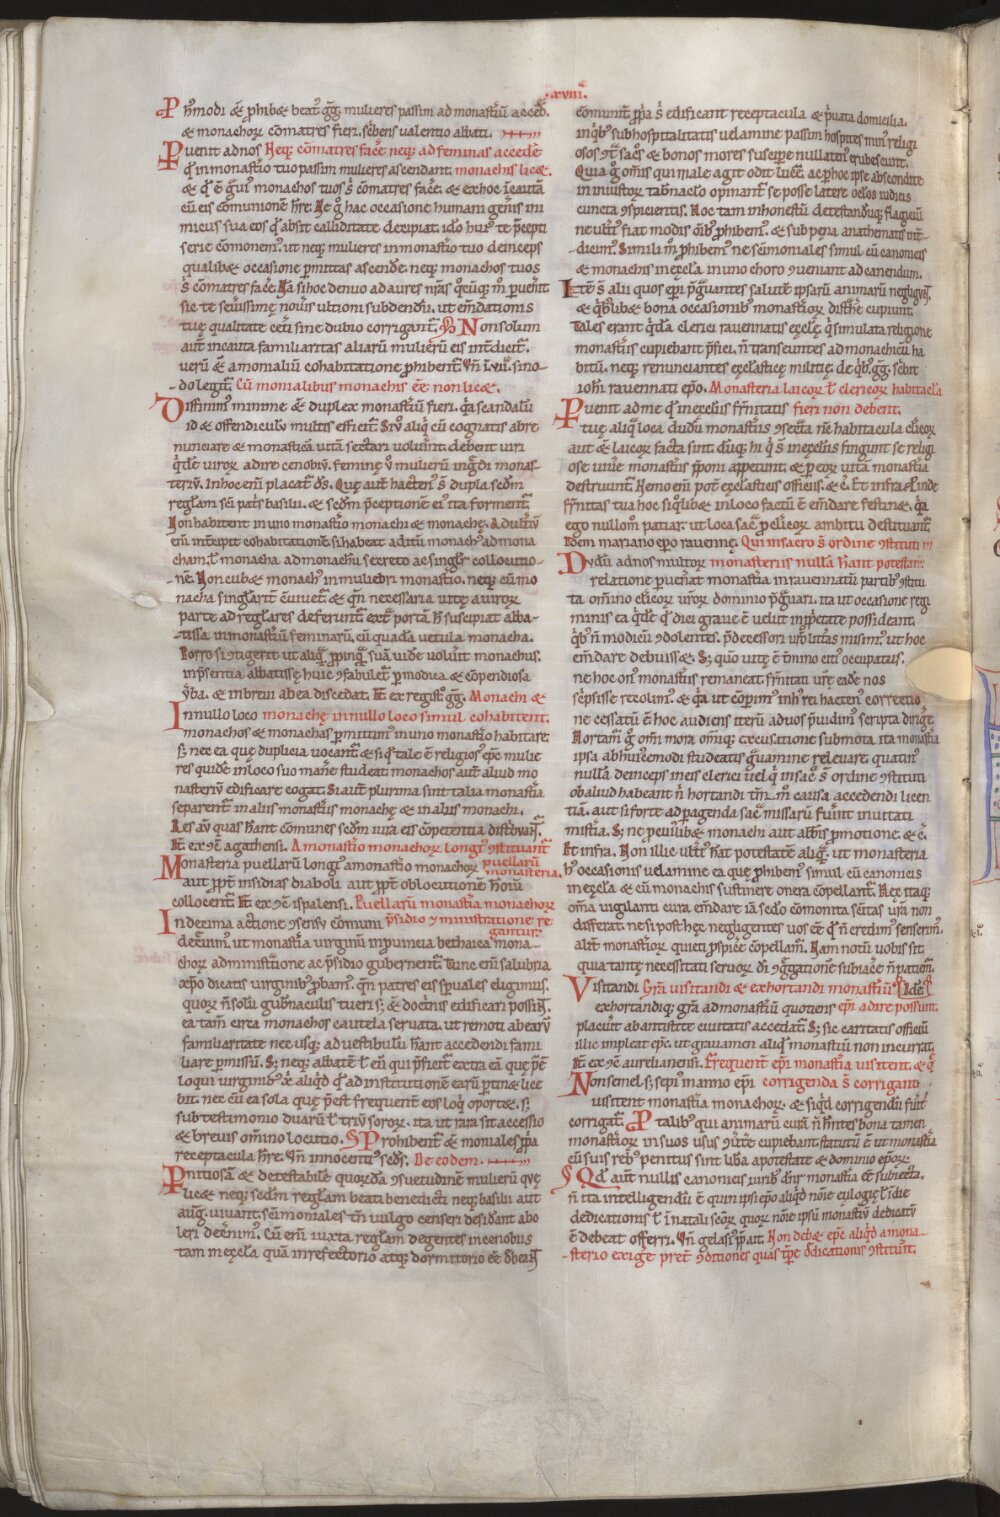 .xviii.
Hꝰmodi ē ꝓhibet beatꝰ gg. mulieres passim ad monastiū acced̄e
& monachoꝝ cōmatres fieri. sc̄bens ualentino abbati.
Puenit ad nos Neq; cōmatres facē neq; ad feminas accedē
qđ in monastio tuo passim mulieres ascendant. monachis licet.
& qđ ē gͣuiꝰ monachos tuos s̄ cōmatres facē. & ex hoc īcautā
cū eis comunionē hr̄e. Ne g̊ hac occasione humani gen̄is ini
micus sua eos qđ absit calliditate decipiat. ido huiꝰ te p̄cepti
serie cōmonemꝰ. ut neq; mulieres in monastio tuo deinceps
qualibet occasione p̄mittas ascende. neq; monachos tuos
s̄ cōmatres facē. Nā si hoc denuo ad aures nr̄as q̊cūq; m̊ puen̄it
sic te seu̓issimę nou̓is ultioni subdendū. ut em̄dationis
tuę qualitate cet̓i sine dubio corrigant̄. Non solum
aut̄ incauta familiaritas aliarū mulierū eis int̓dicit̄.
uerū & amonialiū cohabitatione ꝓhibent̄. Vn̄ ī. vii. sino-
do legit̄. Cū monialibus monachis eē non licet.
Diffinimꝰ minime & duplex monastiū fieri. q̄a scandalū
id & offendiculū multis efficit̄. Si uͦ aliq̄ cū cognatis abre
nunciare & monasticā uitā sectari uoluer̄int. debent uiri
q̓dē uiroꝝ adire cenobiū. feminę u̓ mulierū ingdi monas-
teriū. In hoc em̄ placat̄ ds̄. Quę aut̄ hacten̄ s̄ dupla scd̄m
reglam sc̄i patris basilii. & scd̄m p̄ceptionē eiꝰ ita forment̄.
Non habitent in uno monastio monachi & monachę. Adult̓iū
em̄ int̓cipit cohabitationē. si habeat aditū monachꝰ ad mona
cham. ł monacha ad monachū secreto ac singlr̄ collocutio-
nē. Non cubet monachꝰ in muliebri monastio. neq; cū mo
nacha singlarit̄ cōuiuet̄. & qn̄ necessaria uitę a uiroꝝ
parte ad reglares deferunt̄. extͣ portā h̄ suscipiat abba-
tissa in monastiū feminarū. cū quadā uetula monacha.
Porro si ꝯtigerit ut aliq̄ ꝓpinq̄ suā uidē uoluerit monachus.
in p̄sentia abbatissę huic ꝯfabulet̄ p̄ modica & cōpendiosa
ūba. & in breui ab ea discedat. Īt̄ ex regist̓o gg. Monachi &
In nullo loco monachę in nullo loco simul cohabitent.
monachos & monachas p̄mittimꝰ in uno monastio habitare.
s; nec ea quę duplicia uocant̄. & si qđ tale ē religiosꝰ ep̄c mulie
res quidē in loco suo manē studeat. monachos aut̄ aliud mo
nasteriū edificare cogat. Si aut̄ plurima sint talia monastia
separent̄ in aliis monastis monachę & in aliis monachi.
Res aū quas hn̄t cōmunes scd̄m iura eis cōpetentia distibuant̄.
Īt̄ ex ꝯc̄ agathensi. A monastio monachoꝝ longiꝰ ꝯstituant̄
Monasteria puellarū longiꝰ a monastio monachoꝝ puellarū
monasteria.
aut ꝓpt̄ insidias diaboli aut ꝓpt̄ oblocutionē hoīū
collocent̄. Īt̄ ex ꝯc̄ ispalensi. Puellarū monastia monachoꝝ
In decima actione ꝯsensu cōmuni p̄sidio & ministratione re
gantur.
dec̄uimꝰ. ut monastia uirginū in ꝓuincia betharica mona-
choꝝ administtione ac p̄sidio gubernent̄. Tunc em̄ salubria
xp̄o dicatis uirginibꝰ ꝓbamꝰ. qn̄ patres eis sp̄uales eligimus.
quoꝝ n̄ solū gub̓naculis tueri s; & doct̓nis edificari possīt.
ea tam̄ circa monachos cautela seruata. ut remoti ab earū
familiaritate nec usq; ad uestibulū hn̄t accedendi fami
liare ꝑmissū. S; neq; abbatē ł eū qui p̄ficit̄ extͣ eā que p̄est
loqui uirginibꝰ xp̄i aliqđ qđ ad institutionē earū ꝑtinet lice
bit. nec cū ea sola que p̄est frequent̄ eos loqi oportet. s;
sub testimonio duarū ł triū soroꝝ. ita ut rara sit accessio
& breuis om̄ino locutio. Prohibent̄ & moniales ꝓp̄a
receptacula hr̄e. Vn̄ innocentiꝰ scds̄. De eodem.
Pnitiosā & detestabilē quorūdā ꝯsuetudinē mulierū quę
licet neq; scd̄m reglam beati benedicti neq; basilii aut
aug. uiuant. sc̄imoniales tn̄ uulgo censeri desidant abo
leri dec̄nimꝰ. Cū em̄ iuxta reglam degentes in cenobiis
tam in ęccła quā in refectorio atq; dormitorio eē debeāt
cōmunit̄. ꝓpria s̄ edificant receptacula & p̓uata domicilia.
in q̓bꝰ sub hospitalitatis uelamine passim hospites min̄ religi
osos ꝯtͣ sac̄s & bonos mores suscipē nullaten̄ erubescunt.
Quia g̊ omīs qui male agit odit lucē. ac ꝑ hoc ipse abscondite
in iniustoꝝ tabn̄aclo opinant̄ se posse latere oc̄los iudicis
cuncta ꝯspicientis. Hoc tam inhonestū detestandūq; flagiciū
ne ult̓iꝰ fiat modis oīb̄ ꝓhibemꝰ. & sub pena anathematis int̓-
dicimꝰ. Simili m̊ ꝓhibemꝰ ne sc̄imoniales simul cū canonicis
& monachis in ęccła in uno choro ꝯueniant ad canendum.
Itē s̄ alii quos ep̄i p̄grauantes salutē ipsarū animarū negligūt.
& q̓bꝰlibet bona occasionibꝰ monastioꝝ dist̓hē cupiunt.
Tales erant q̓dā clerici rauennatis ęccłę. q̓ simulata religione
monastiis cupiebant p̄fici. n̄ transeuntes ad monachicū ha
bitū. neq; renunciantes ęccłasticę militię. de q̓bꝰ gg. sc̄bit
ioh̄i rauennati ep̄o. Monasteria laicoꝝ ł clericoꝝ habitacła
Puenit ad me qđ in ęccłiis fr̄nitatis fieri non debent.
tuę aliq̄ loca dudū monastiis ꝯsecrata nc̄ habitacula cłicoꝝ
aut & laicoꝝ facta sint. dūq; hi q̓ s̄ in ęccłiis fingunt se religi
ose uiuē monastiis p̄poni appetunt. & ꝑ eoꝝ uitā monastia
destruunt̄. Nemo em̄ pot̄ ęccłasticis officiis. & c̄. Et infra. Vnde
fr̄nitas tua hoc si q̊libet in loco factū ē em̄dare festinet. q̄a
ego nullomꝰ patiar. ut loca sac̄ ꝑ cłicoꝝ ambitū destruant̄.
Idem mariano ep̄o rauennę. Qui in sac̄o s̄ ordine ꝯstituti in
Dudū ad nos multoꝝ monasteriis nullā hn̄t potestatē.
relatione puen̄at monastia in rauennatū partibꝰ ꝯstitu
ta om̄ino cłicoꝝ ur̄oꝝ dominio p̄grauari. ita ut occasione regi
minis ea q̓dē qđ dici graue ē uelut in ꝓp̓etate possideant.
q̓bꝰ n̄ modicū ꝯdolentes. p̄decessori ur̄o litt̓as misimꝰ. ut hoc
em̄dare debuisset. S; qm̊ uitę ē t̓mino citiꝰ occupatus.
ne hoc onꝰ monastiis remaneat. fr̄nitati ur̄ę eadē nos
sc̓psisse recolimꝰ. & q̄a ut cōperimꝰ in hꝰ rei hacten̄ correctio
ne cessatū ē hoc audens iterū ad uos p̄uidimꝰ scripta dirigē.
Hortam̄ g̊ om̄i mora om̄iq; excusatione submota. ita monastia
ipsa ab huiꝰcemodi studeatis gͣuamine releuare. quatinꝰ
nullā deinceps in eis clerici uel q̓ in sac̊ s̄ ordine ꝯstituti
ob aliud habeant n̓ hortandi tm̄. m̊ causa accedendi licen
tiā. aut si forte ad ꝑagenda sac̄ missarū fu̓int inuitati
mist̓ia. S; ne ꝑ cuiꝰlibet monachi aut abb̄is ꝓmotione. & c̄.
Et infra. Non illic ult̓iꝰ hāt potestatē aliq̄. ut monasteria
hꝰ occasionis uelamine ea quę ꝓhibemꝰ simul cū canonicis
in ęccła & cū monachis sustinere onera cōpellant̄. Hęc itaq;
om̄a uigilanti cura em̄dare iā sc̄do cōmonita sc̄itas ur̄a non
differat. ne si post hęc negligentes uos eē qđ n̄ credimꝰ senserimꝰ
alit̄ monastioꝝ quieti ꝓspicē cōpellam̄. Nam notū uobis sit
quia tantę necessitati seruoꝝ dī ꝯgͣgationē subiacē n̄ patim̄.
Visitandi Gr̄a uisitandi & exhortandi monastiū
exhortandiq; gr̄a ad monastiū quotiens ep̄i adire possunt.
placuerit abantistite ciuitatis accedat̄. S; sic caritatis officiū
illic impleat ep̄c. ut gͣuamen aliq̄đ monastiū non incurrat.
Īt̄ ex ꝯc̄ aurelianensi. Frequent̄ ep̄i monastia uisitent. & q̄
Non semel s; sepiꝰ in anno ep̄i corrigenda s̄ corrigant
uisitent monastia monachoꝝ. & siqđ corrigendū fu̓it
corrigat̄. Pͣ talibꝰ qui animarū curā n̄ hn̄tes bona tamen
monastioꝝ in suos usus ꝯu̓tē cupiebant. statutū ē ut monastia
cū suis rebꝰ penitus sint lib̓a a potestate & dominio ep̄oꝝ.
Qđ aut̄ nullis canonicis iuribꝰ dn̄r monastia eē subiecta.
n̄ ita intelligendū ē quin ipsi ep̄o aliqđ noīe eulogię ł i die
dedicationis ł i natali sc̄oꝝ quoꝝ noīe ipsū monastiū dedicatū
ē debeat offerri. Vn̄ gelasiꝰ pp̄ ait. Non debet ep̄c aliqđ a mona-
sterio exigē p̄ter ꝯditiones quas tp̄e dedicationis ꝯstituit.